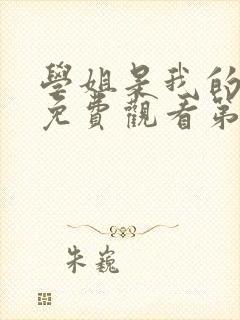 學姐是我的
免費觀看第
朱巍